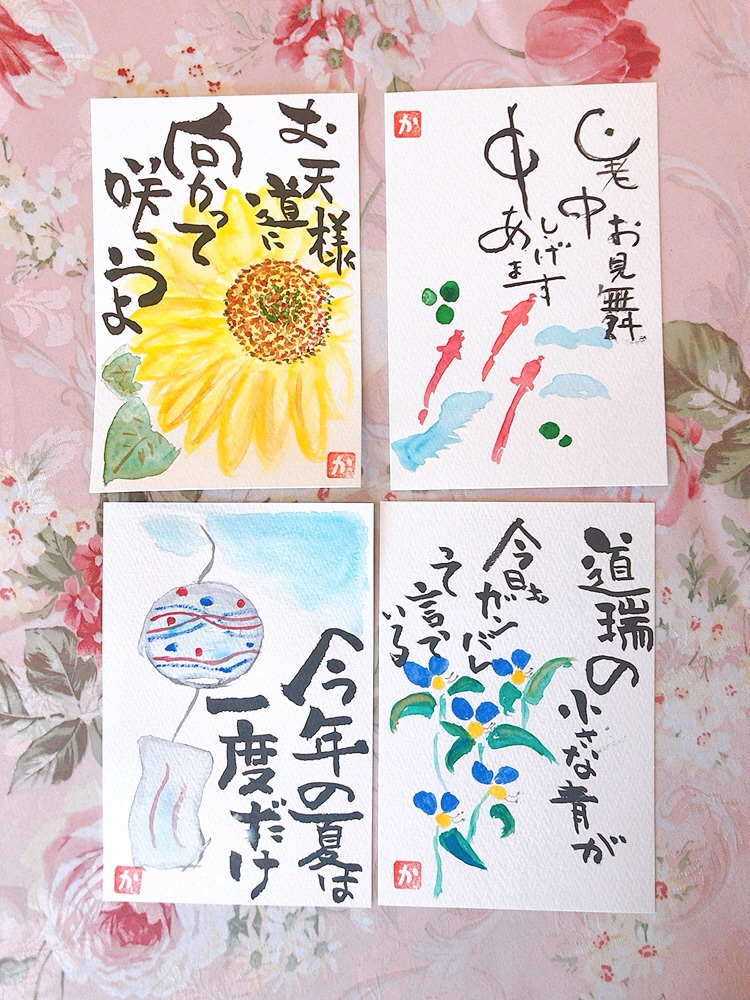 お天道様に
向かって
咲こうよ
か
暑中お見舞
申しあげます
か
今年の夏は
一度だけ
か
道瑞の
小さな青が
今日もガンバレ
と言って
いる
か